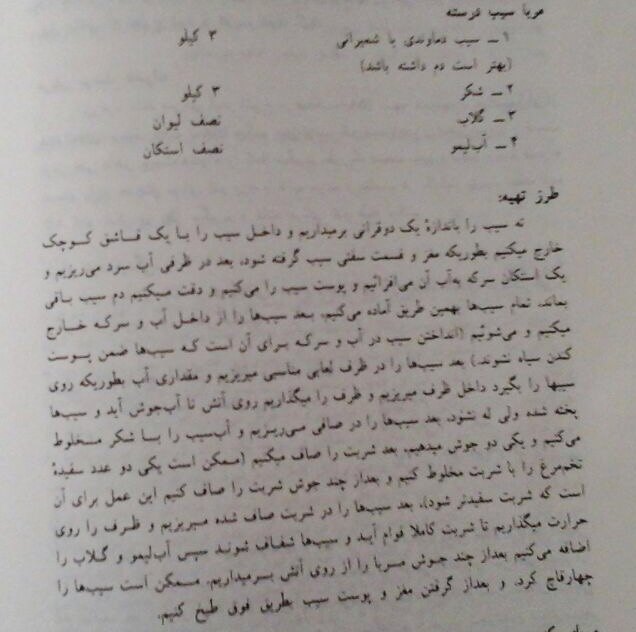 مربا سیب درسته
۱ــ سیب دماوندی یا شمیرانی ۳ کیلو
(بهتر است دم داشته باشد)
۲ــ شکر ۳ کیلو
۳ــ گلاب نصف لیوان
۴ــ آب‌لیمو نصف استکان
طرز تهیه:
ته سیب را باندازهٔ یک دوقرانی برمیداریم و داخل سیب را با یک قاشق کوچک
خارج میکنیم بطوریکه مغز و قسمت سفتی سیب گرفته شود، بعد در ظرفی آب سرد می‌ریزیم و
یک استکان سرکه به‌آب آن می‌افزائیم و پوست سیب را می‌کنیم و دقت میکنیم دم سیب باقی
بماند. تمام سیب‌ها بهمین طریق آماده می‌کنیم، بعد سیب‌ها را از داخل آب و سرکه خارج
میکنیم و می‌شوئیم (انداختن سیب در آب و سرکه برای آن است که سیب‌ها ضمن پوست
کندن سیاه نشوند.) بعد سیب‌ها را در ظرف لعابی مناسبی میریزیم و مقداری آب بطوریکه روی
سیبها را بگیرد داخل ظرف میریزیم و ظرف را میگذاریم روی آتش تا آب‌جوش آید و سیب‌ها
پخته شده ولی له نشود، بعد سیب‌ها را در صافی می‌ریزیم و آب‌سیب را با شکر مخلوط
می‌کنیم و یکی دو جوش میدهیم، بعد شربت را صاف میکنیم (ممکن است یکی دو عدد سفیدهٔ
تخم‌مرغ را با شربت مخلوط کنیم و بعداز چند جوش شربت را صاف کنیم این عمل برای آن
است که شربت سفیدتر شود)، بعد سیب‌ها را در شربت صاف شده میریزیم و ظرف را روی
حرارت میگذاریم تا شربت کاملا قوام آید و سیب‌ها شفاف شوند سپس آب‌لیمو و گلاب را
اضافه می‌کنیم بعداز چند جوش مربا را از روی آتش برمیداریم. ممکن است سیب‌ها را
چهارقاچ کرد. و بعداز گرفتن مغز و پوست سیب بطریق فوق طبخ کنیم.